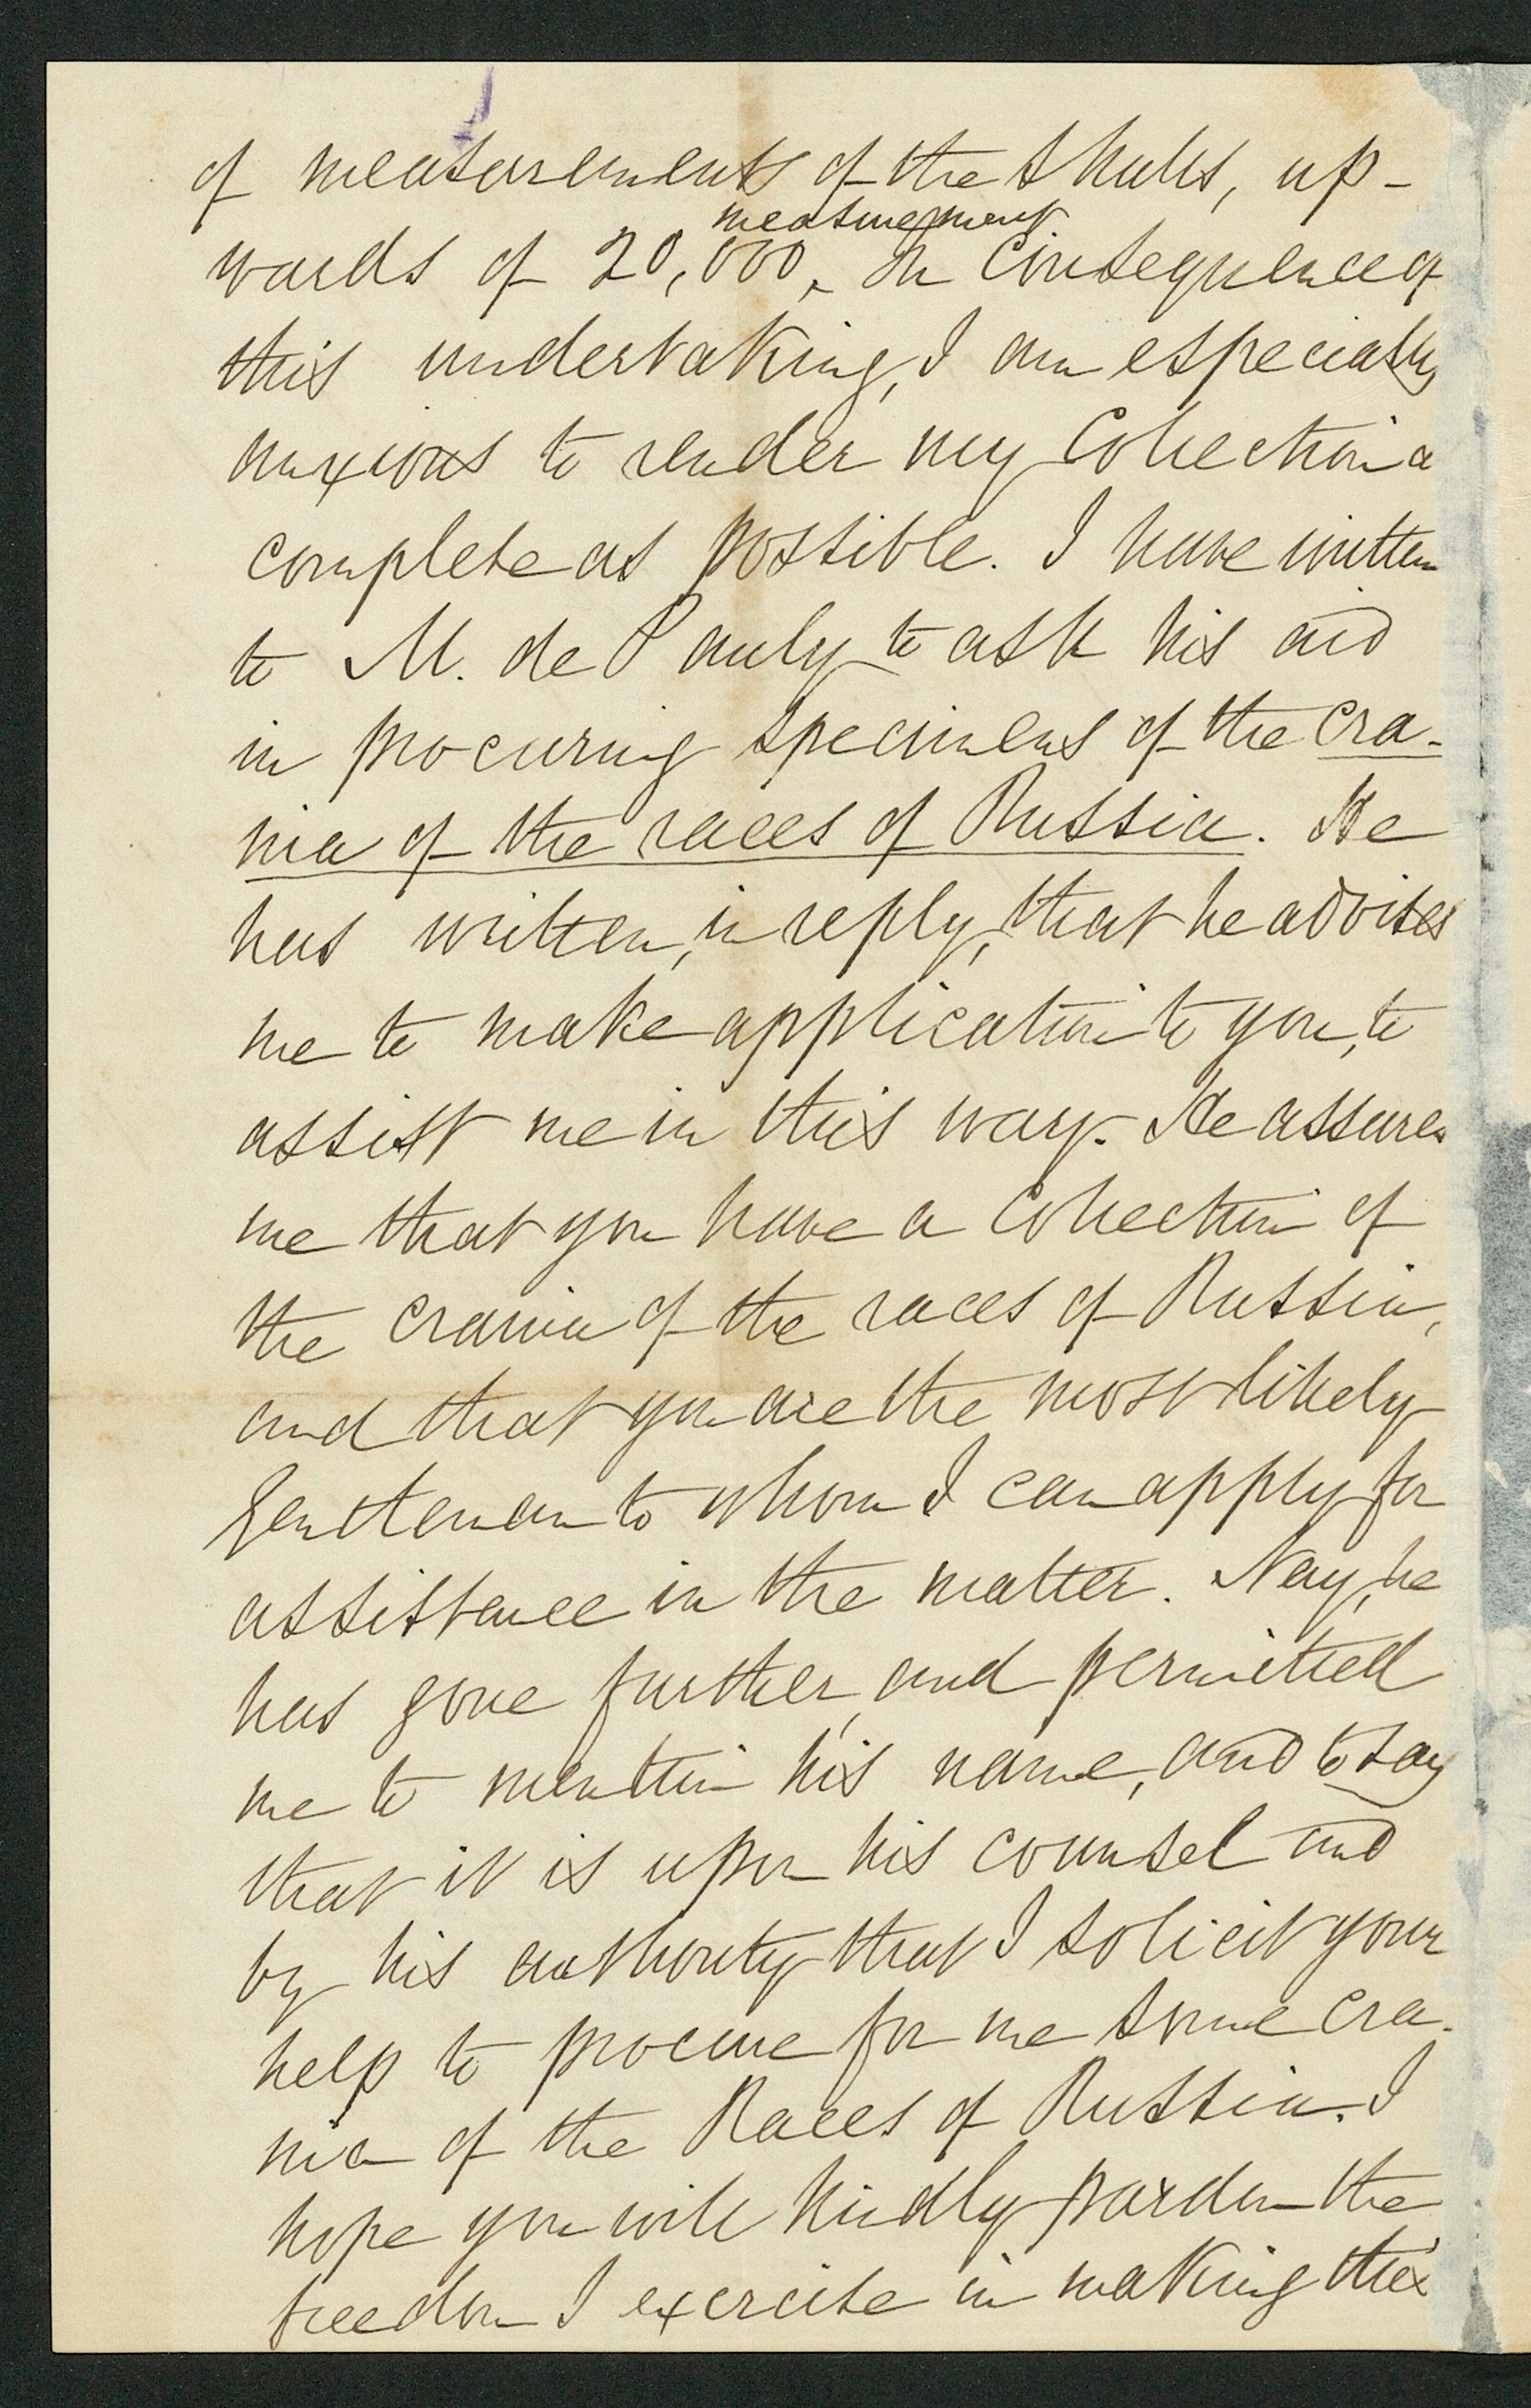 of measurements of the skulls, up-
measurement
wards of 20,000. In consequence of
this undertaking, I am especially
anxious to render my Collection a
complete as possible. I have written
to M. de Pauly to ask his aid
in procuring specimens of the cra-
nia of the races of Russia. He
has written, in reply, that he advises
me to make application to you, to
assist me in this way. He assures
me that you have a Collection of
the crania of the races of Russia,
and that you are the most likely
Gentleman to whom I can apply for
assistance in the matter. Nay, he
has gone further, and permitted
me to mention his name, and to say
that it is upon his counsel and
by his authority that I solicit your
help to procure for me some cra-
nia of the Races of Russia. I
hope you will kindly pardon the
freedom I exercise in making this